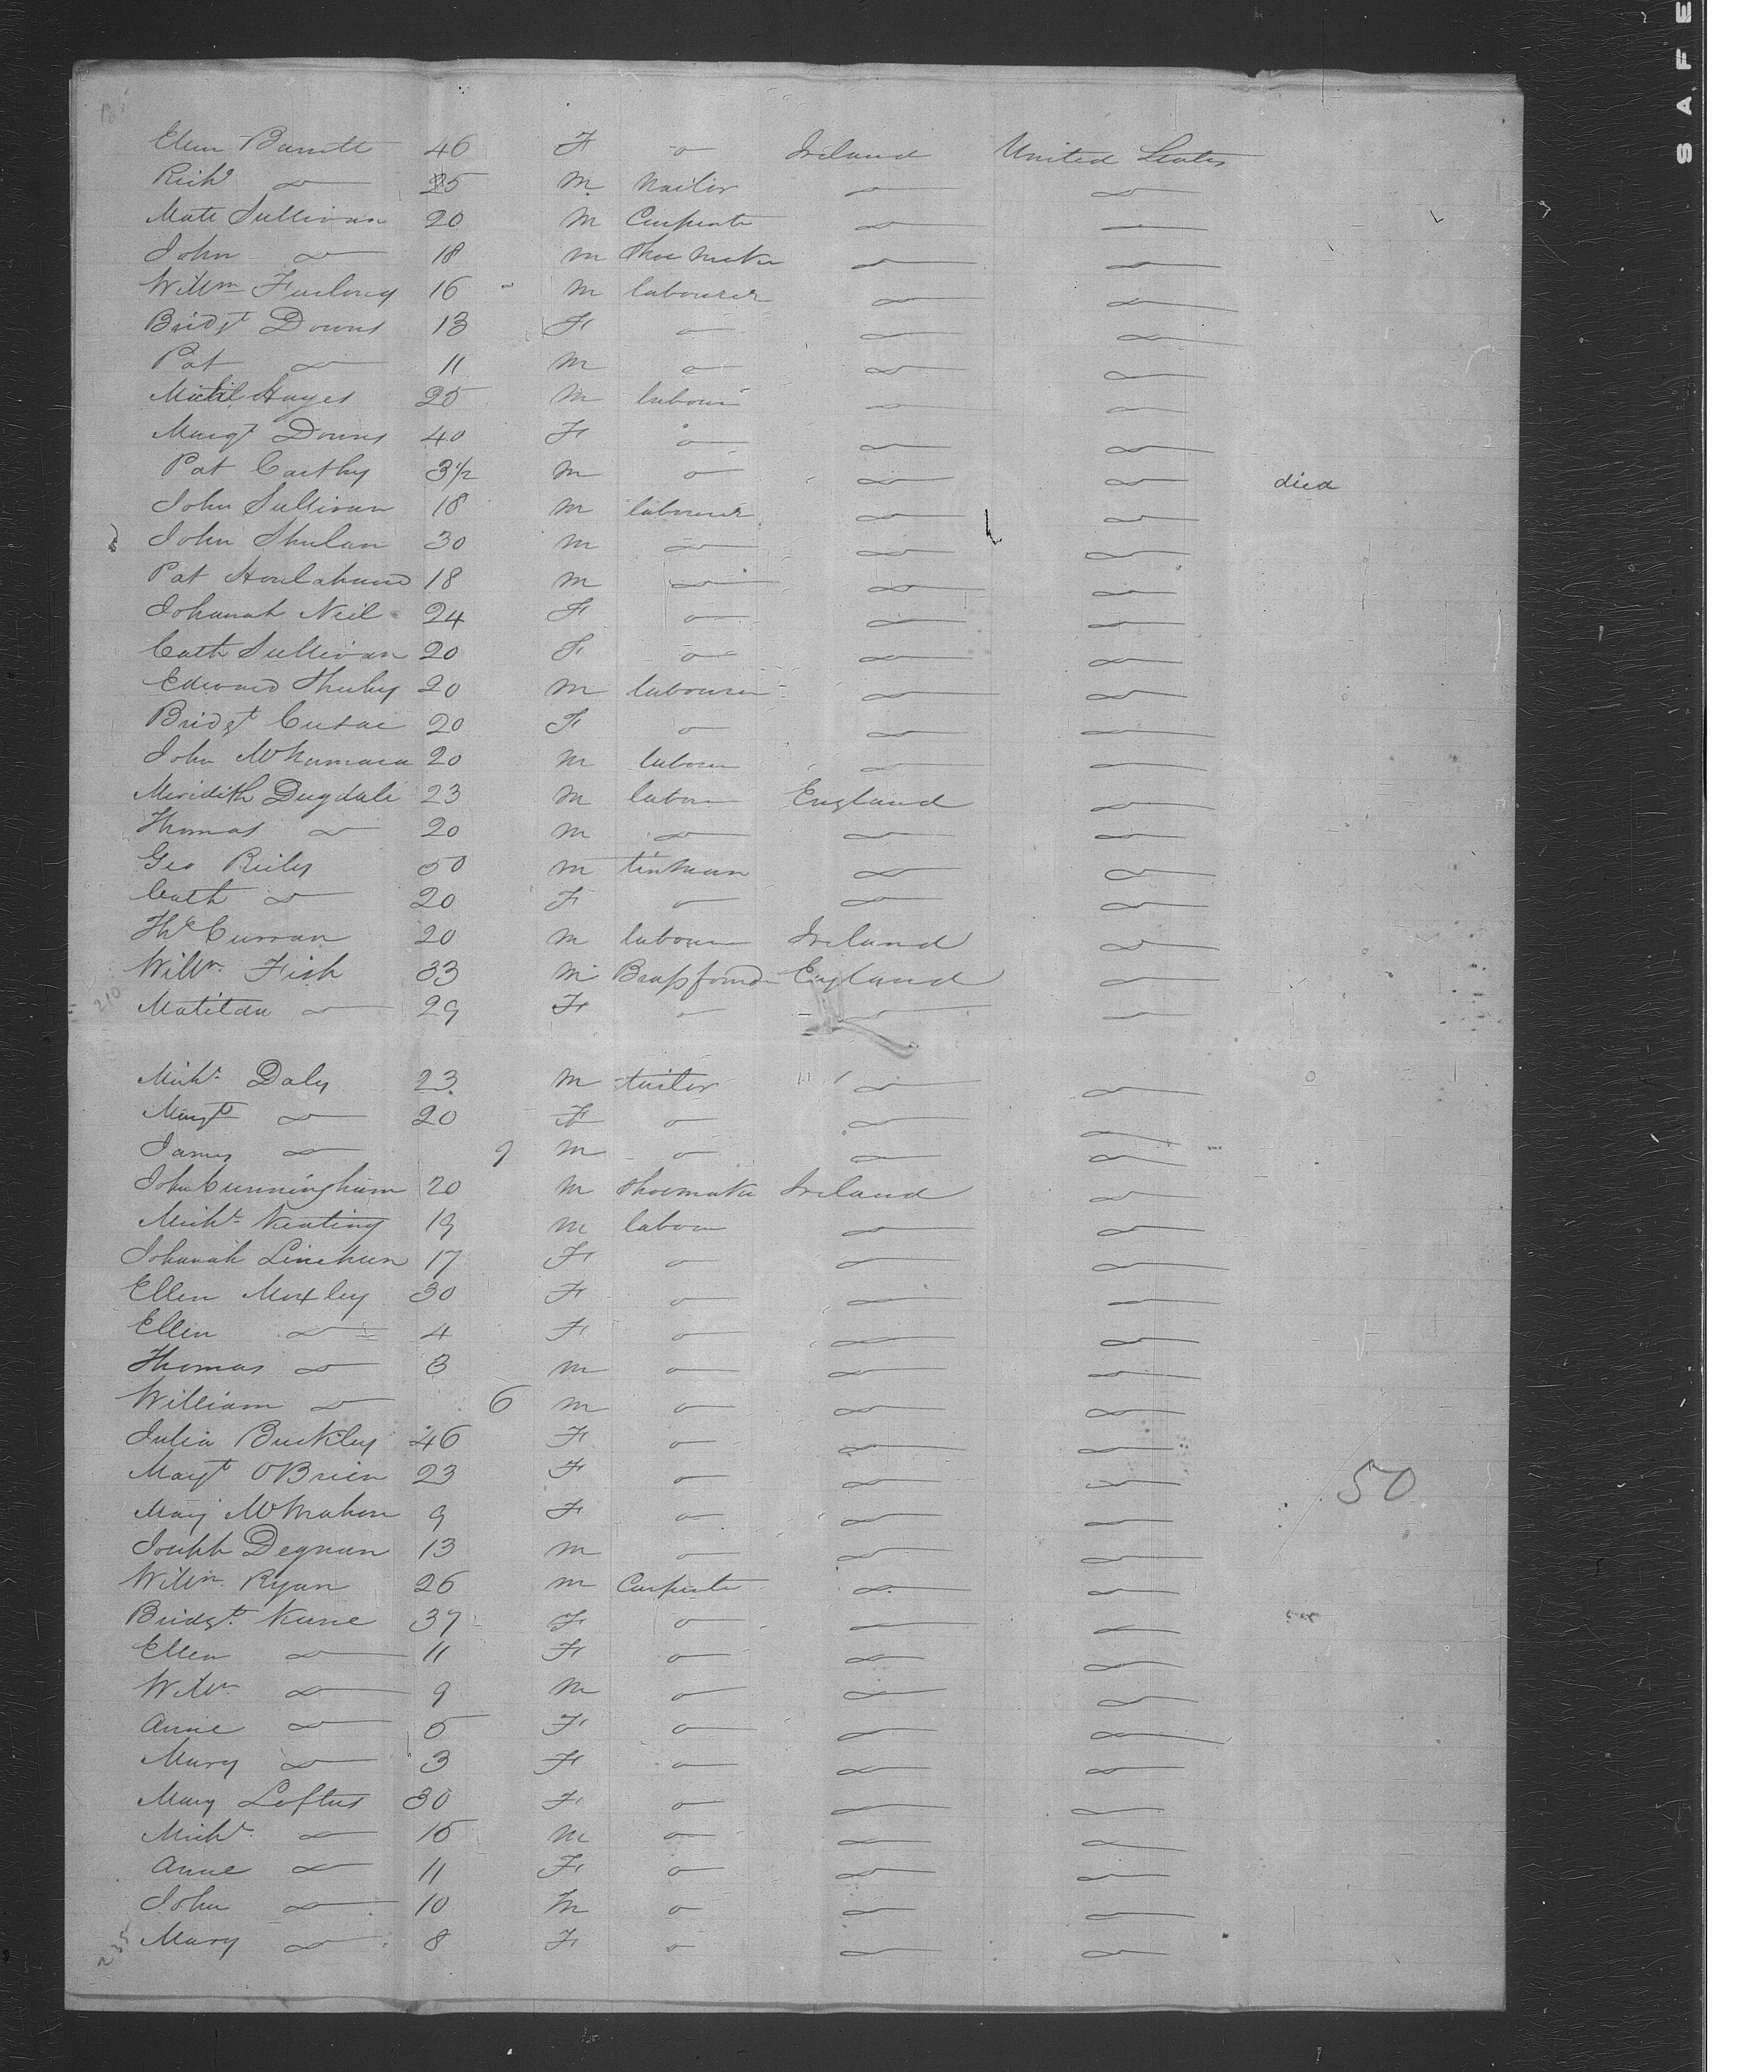 Ellen Barrett 46 F - o - Ireland United States
Richd do 25 M Nailor do do
Matt Sullivan 20 M Carpenter do do
John do 18 M Shoe Maker do do
Willm Furlong 16 M labourer do do
Bridgt Downs 13 F o do do
Pat do 11 M o do do
Michl Hayes 25 M labourer do do
Margt Downs 40 F o do do
Pat Carthy 3½ M o do do died
John Sullivan 18 M labourer do do
John 30 M do do do
Pat Houlahand 18 M do do do
Johanah Neil 24 F o do do
Cath Sullivan 20 F o do do
Edward 20 M labourer do do
Bridgt Cusac 20 F o do do
John McNamara 20 M labour do do
Meridith Dugdale 23 M labour England do
Thomas do 20 M do do do
Geo Reily 50 M tinman do do
Cath do 20 F o do do
Ths Curran 20 M labour Ireland do
Willm Fish 33 M Brassfounder England do
210
Matilda do 29 F o do do
Michl Daly 23 M tailor do do
Margt do 20 F o do do
James do 9 M o do do
John Cunningham 20 M Shoemaker Ireland do
Michl Keating 19 M labour do do
Johanah Linehan 17 F o do do
Ellen Moxley 30 F o do do
Ellen do 4 F o do do
Thomas do 3 M o do do
William do 6 M o do do
Julia Buckley 46 F o do do
Margt OBrien 23 F o do do 50
Mary McMahon 9 F o do do
Joseph Degnan 13 M o do do
Willm Ryan 26 M Carpenter do do
Bridgt Kane 37 F o do do
Ellen do 11 F o do do
Willm do 9 M o do do
Anne do 5 F o do do
Mary do 3 F o do do
Mary Loftus 30 F o do do
Michl do 15 M o do do
Anne do 11 F o do do
John do 10 M o do do
235
Mary do 8 F o do do
SAFE